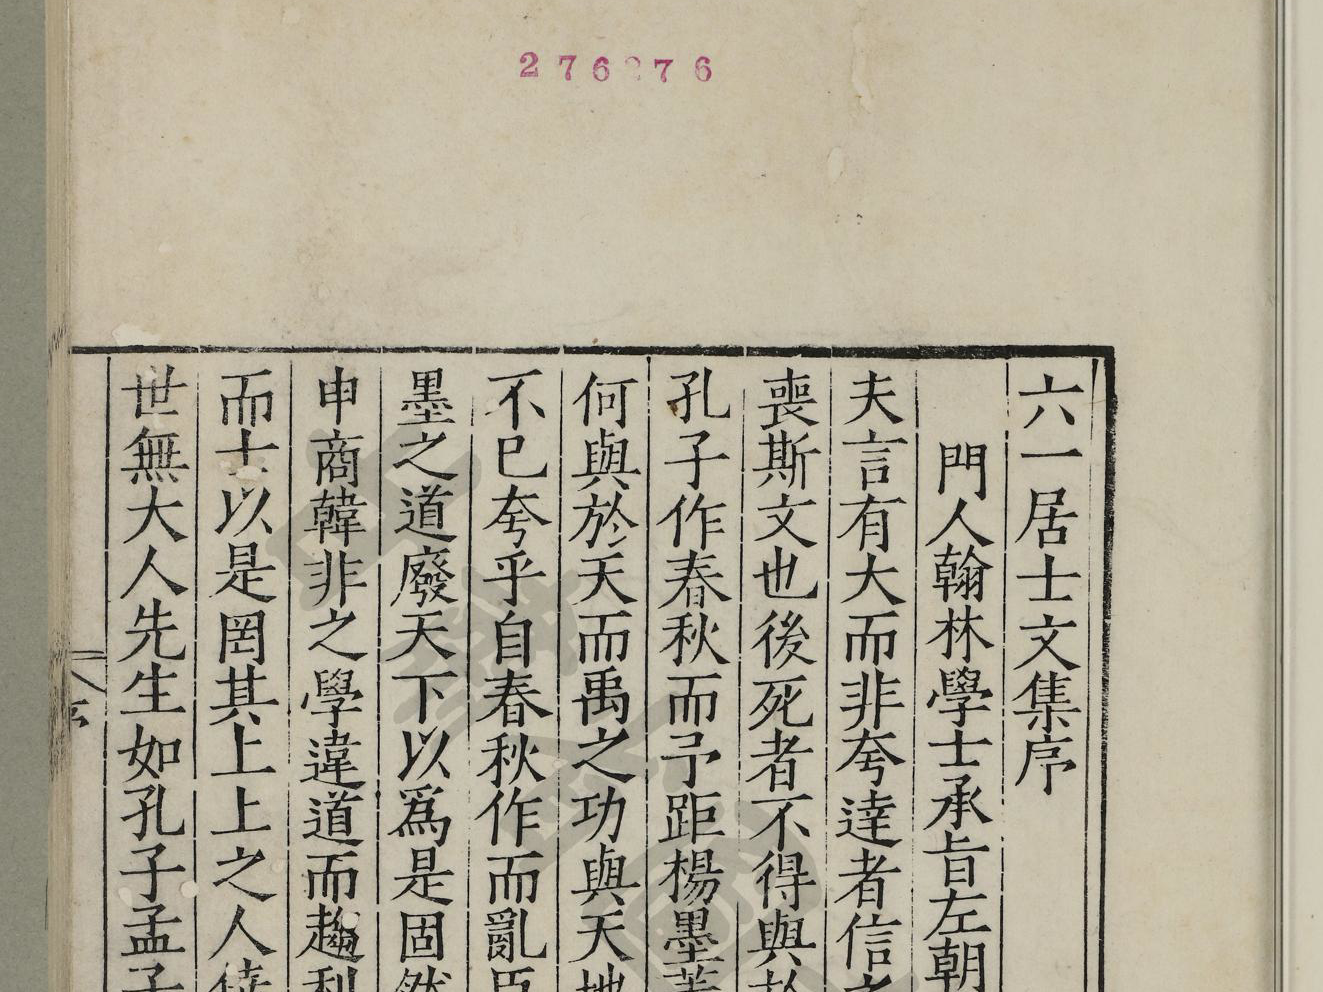 276276
六一居士文集序
門人翰林學士承旨左朝
夫言有大而非夸達者信之
喪斯文也後死者不得與於
孔子作春秋而予距楊墨蓋
何與於天而禹之功與天地
不已夸乎自春秋作而亂臣
墨之道廢天下以爲是固然
申商韓非之學違道而趨利
而士以是罔其上上之人僥
世無大人先生如孔子孟子
序